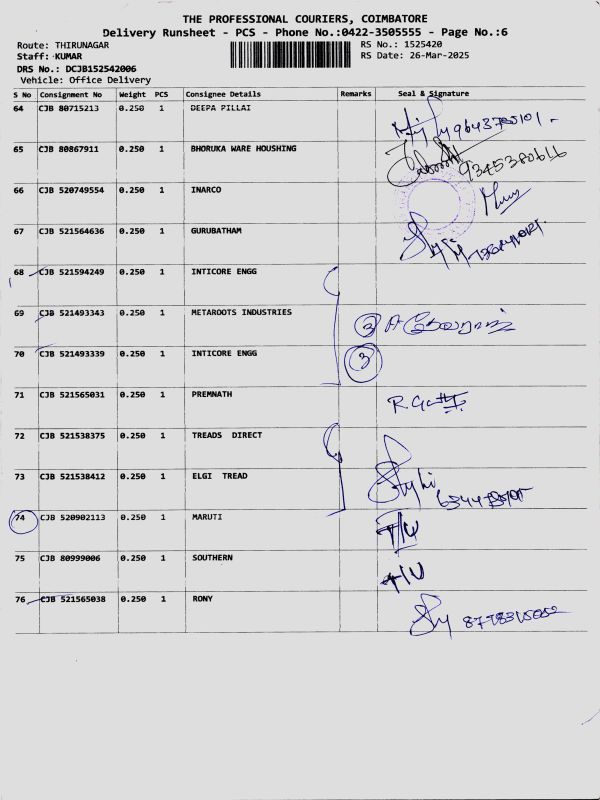 THE PROFESSIONAL COURIERS, COIMBATORE
Delivery Runsheet - PCS - Phone No.:0422-3505555 - Page No.:6
Route: THIRUNAGAR
RS No.: 1525420
Staff: KUMAR
RS Date: 26-Mar-2025
DRS No.: DCJB152542006
Vehicle: Office Delivery
S No Consignment No Weight PCS Consignee Details Remarks Seal & Signature
64 CJB 80715213 0.250 1 DEEPA PILLAI
65 CJB 80867911 0.250 1 BHORUKA WARE HOUSHING 9345380616
66 CJB 520749554 0.250 1 INARCO
67 CJB 521564636 0.250 1 GURUBATHAM
68 CJB 521594249 0.250 1 INTICORE ENGG
69 CJB 521493343 0.250 1 METAROOTS INDUSTRIES 3
70 CJB 521493339 0.250 1 INTICORE ENGG 3
71 CJB 521565031 0.250 1 PREMNATH
72 CJB 521538375 0.250 1 TREADS DIRECT
73 CJB 521538412 0.250 1 ELGI TREAD
74 CJB 520902113 0.250 1 MARUTI
75 CJB 80999006 0.250 1 SOUTHERN
76 CJB 521565038 0.250 1 RONY